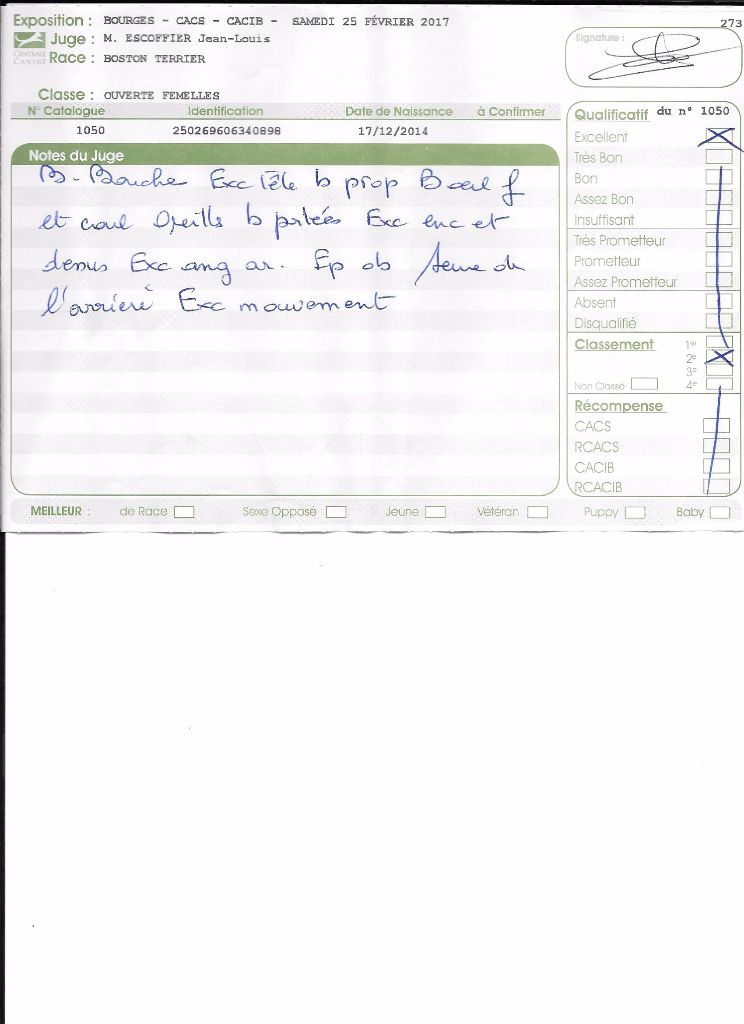 Exposition : BOURGES - CACS - CACIB - SAMEDI 25 FÉVRIER 2017
273
Juge : M. ESCOFFIER Jean-Louis
Signature :
CENTRALE CANINE
Race : BOSTON TERRIER
Classe : OUVERTE FEMELLES
N° Catalogue Identification Date de Naissance à Confirmer
1050 250269606340898 17/12/2014
Notes du Juge
B. Bouche Exc tête b prop B oeil f
et coul Oreills b portées Exc enc et
dessus Exc ang ar. Ep ob
l'arrière Exc mouvement
Qualificatif du n° 1050
Excellent
Très Bon
Bon
Assez Bon
Insuffisant
Très Prometteur
Prometteur
Assez Prometteur
Absent
Disqualifié
Classement 1er
2e
3e
Non Classé 4e
Récompense
CACS
RCACS
CACIB
RCACIB
MEILLEUR : de Race Sexe Opposé Jeune Vétéran Puppy Baby